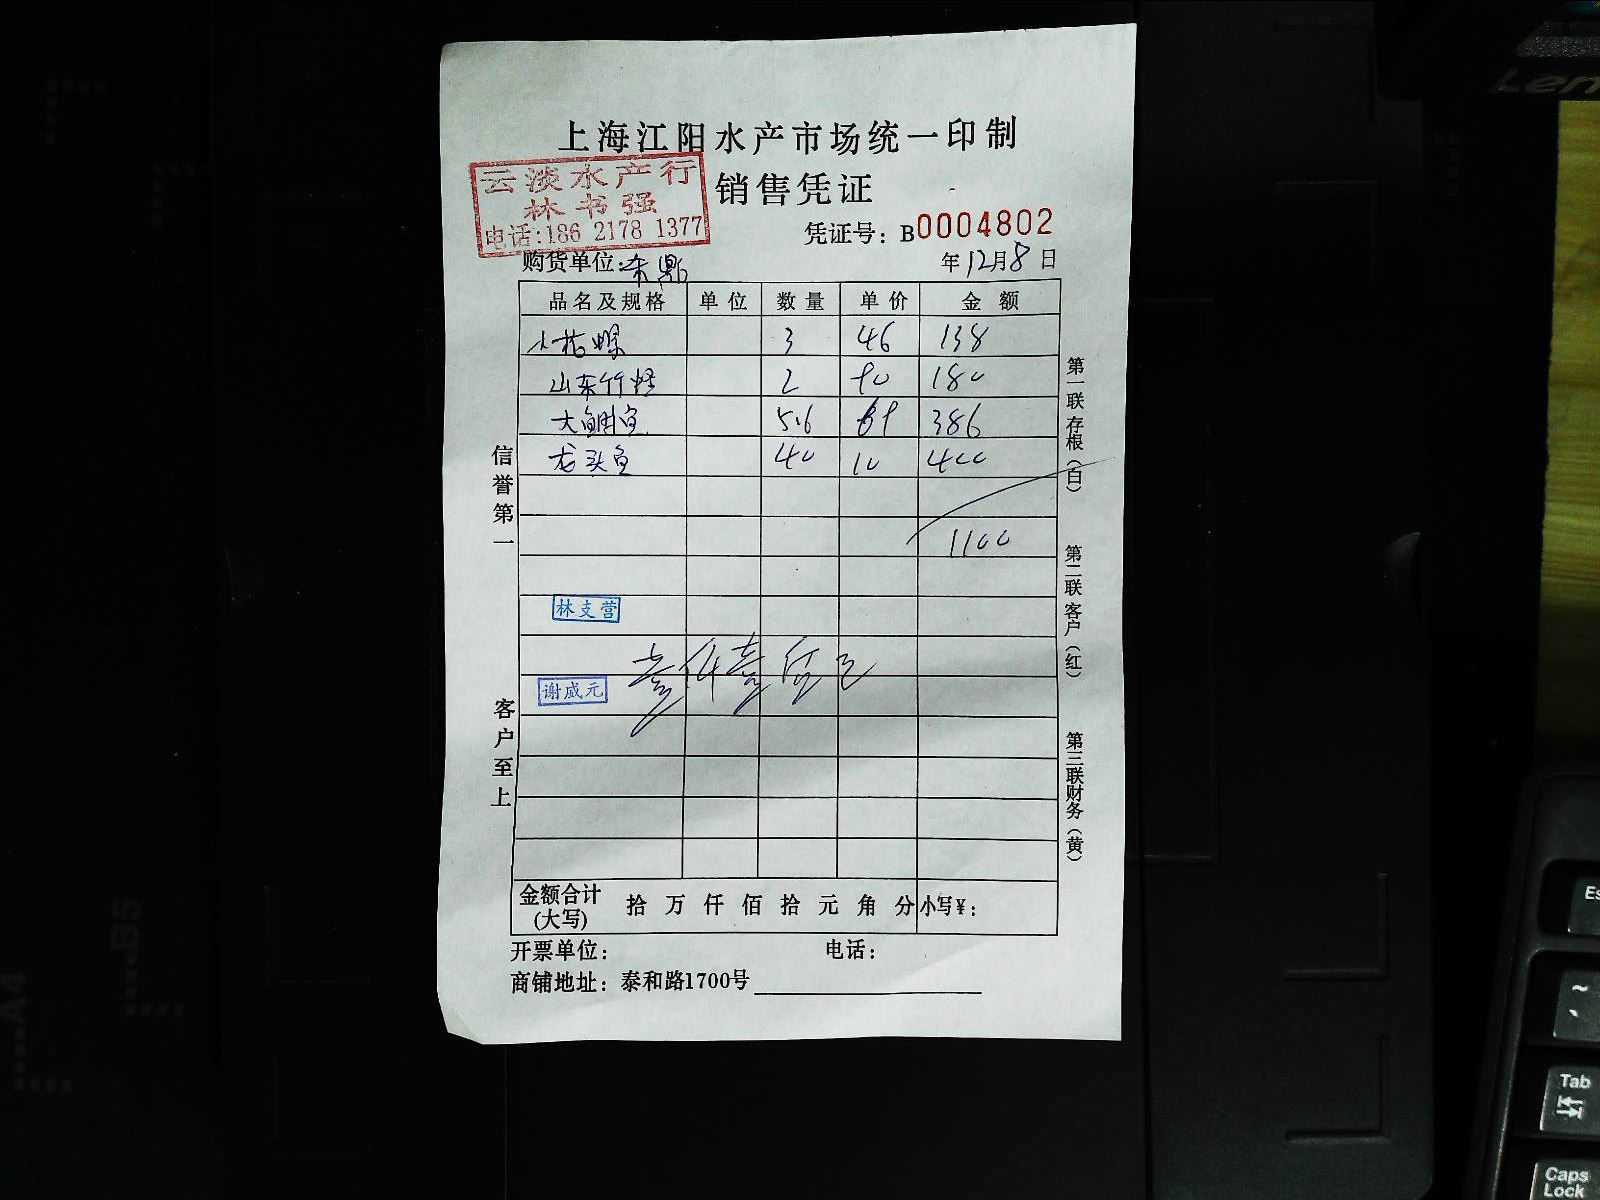 上海江阳水产市场统一印制
销售凭证
云淡水产行
林书强
电话:186 2178 1377
凭证号: B0004802
购货单位: 东鼎
年12月8日
品名及规格 单位 数量 单价 金额
3 46 138
山东竹蛏 2 90 180
大鲷鱼 5.6 69 386
龙头鱼 40 10 400
1100
林支营
壹仟壹佰元
谢威元
金额合计(大写) 拾 万 仟 佰 拾 元 角 分 小写¥:
开票单位: 电话:
商铺地址: 泰和路1700号
信誉第一
客户至上
第一联存根(白)
第二联客户(红)
第三联财务(黄)
Len
A4
B5
Es
~
Tab
Caps
Lock